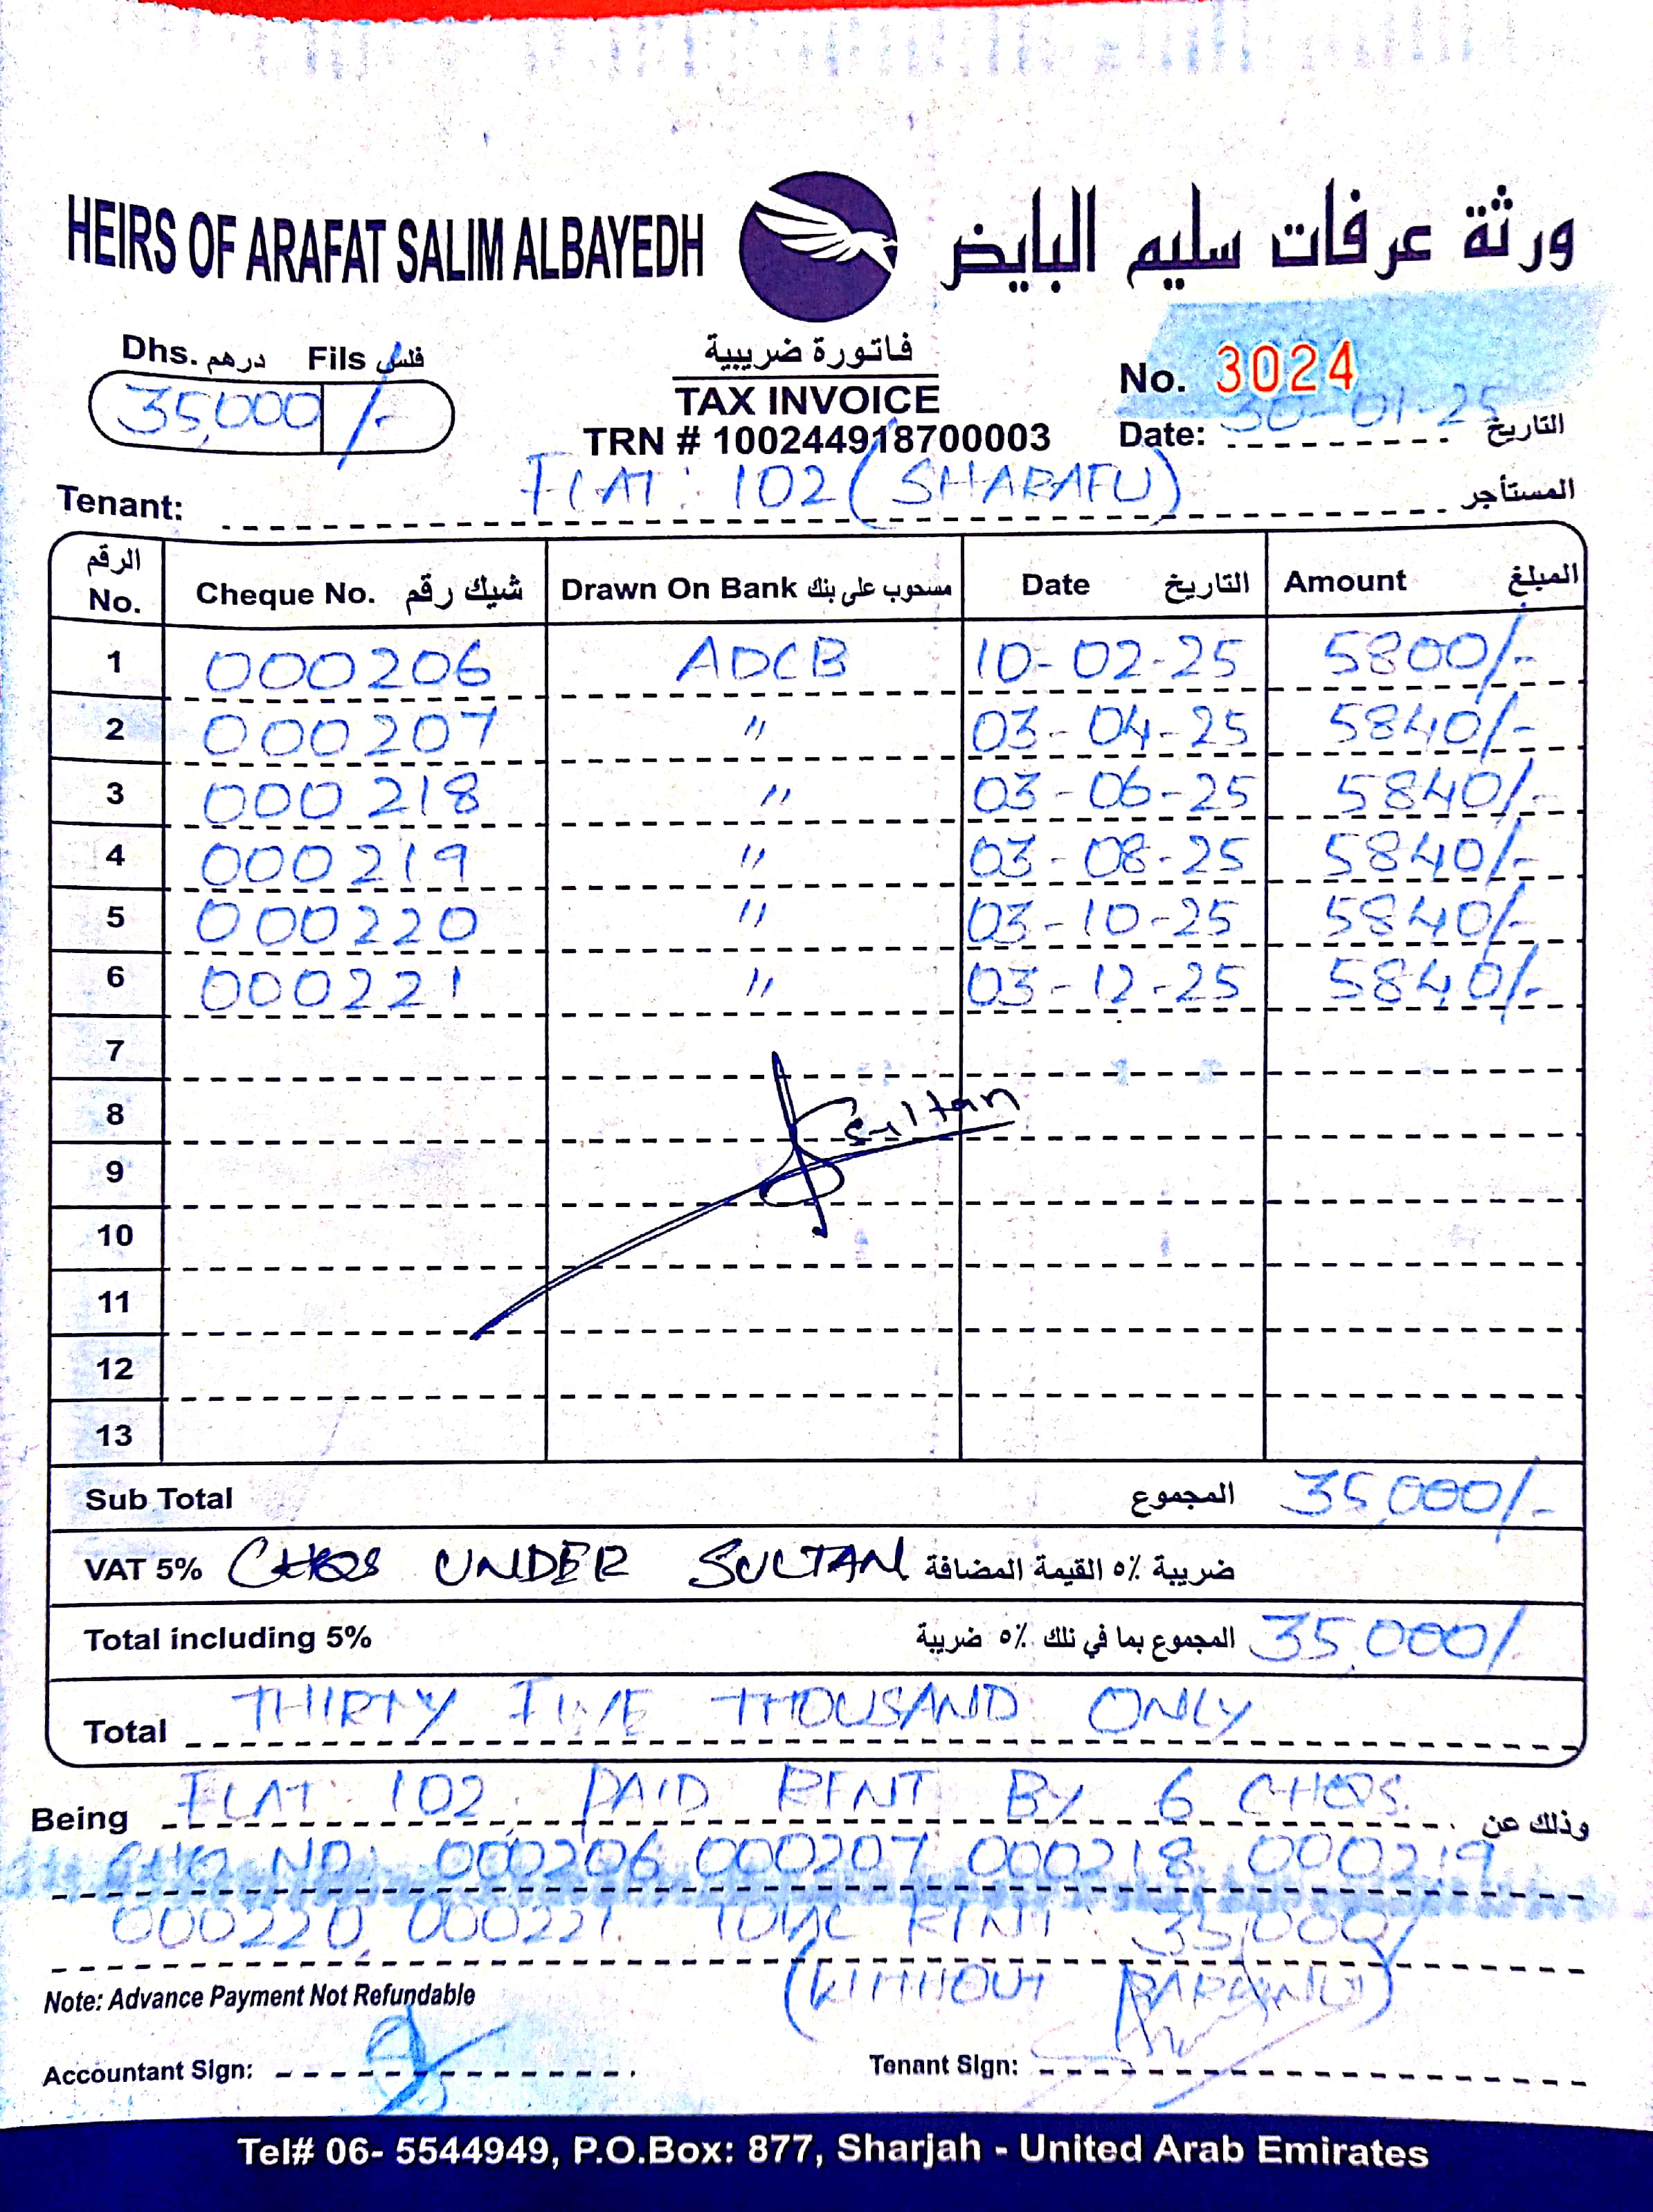 HEIRS OF ARAFAT SALIM ALBAYEDH ورثة عرفات سليم البايض
Dhs. درهم Fils فلس
35,000 /-
فاتورة ضريبية
TAX INVOICE
TRN # 100244918700003
No. 3024
Date: 30-01-25 التاريخ
Tenant: FLAT: 102 (SHARAFU) المستأجر
الرقم No. Cheque No. شيك رقم Drawn On Bank مسحوب على بنك Date التاريخ Amount المبلغ
1 000206 ADCB 10-02-25 5800/-
2 000207 " 03-04-25 5840/-
3 000218 " 03-06-25 5840/-
4 000219 " 03-08-25 5840/-
5 000220 " 03-10-25 5840/-
6 000221 " 03-12-25 5840/-
7
8 Sultan
9
10
11
12
13
Sub Total المجموع 35,000/-
VAT 5% CHQS UNDER SULTAN ضريبة ٥٪ القيمة المضافة
Total including 5% المجموع بما في تلك ٥٪ ضريبة 35,000/
Total THIRTY FIVE THOUSAND ONLY
Being FLAT: 102, PAID RENT BY 6 CHQS. وذلك عن
CHQ NO: 000206 000207 000218 000219
000220, 000221. TOTAL RENT: 35,000/
(WITHOUT PARKING)
Note: Advance Payment Not Refundable
Accountant Sign: Tenant Sign:
Tel# 06- 5544949, P.O.Box: 877, Sharjah - United Arab Emirates